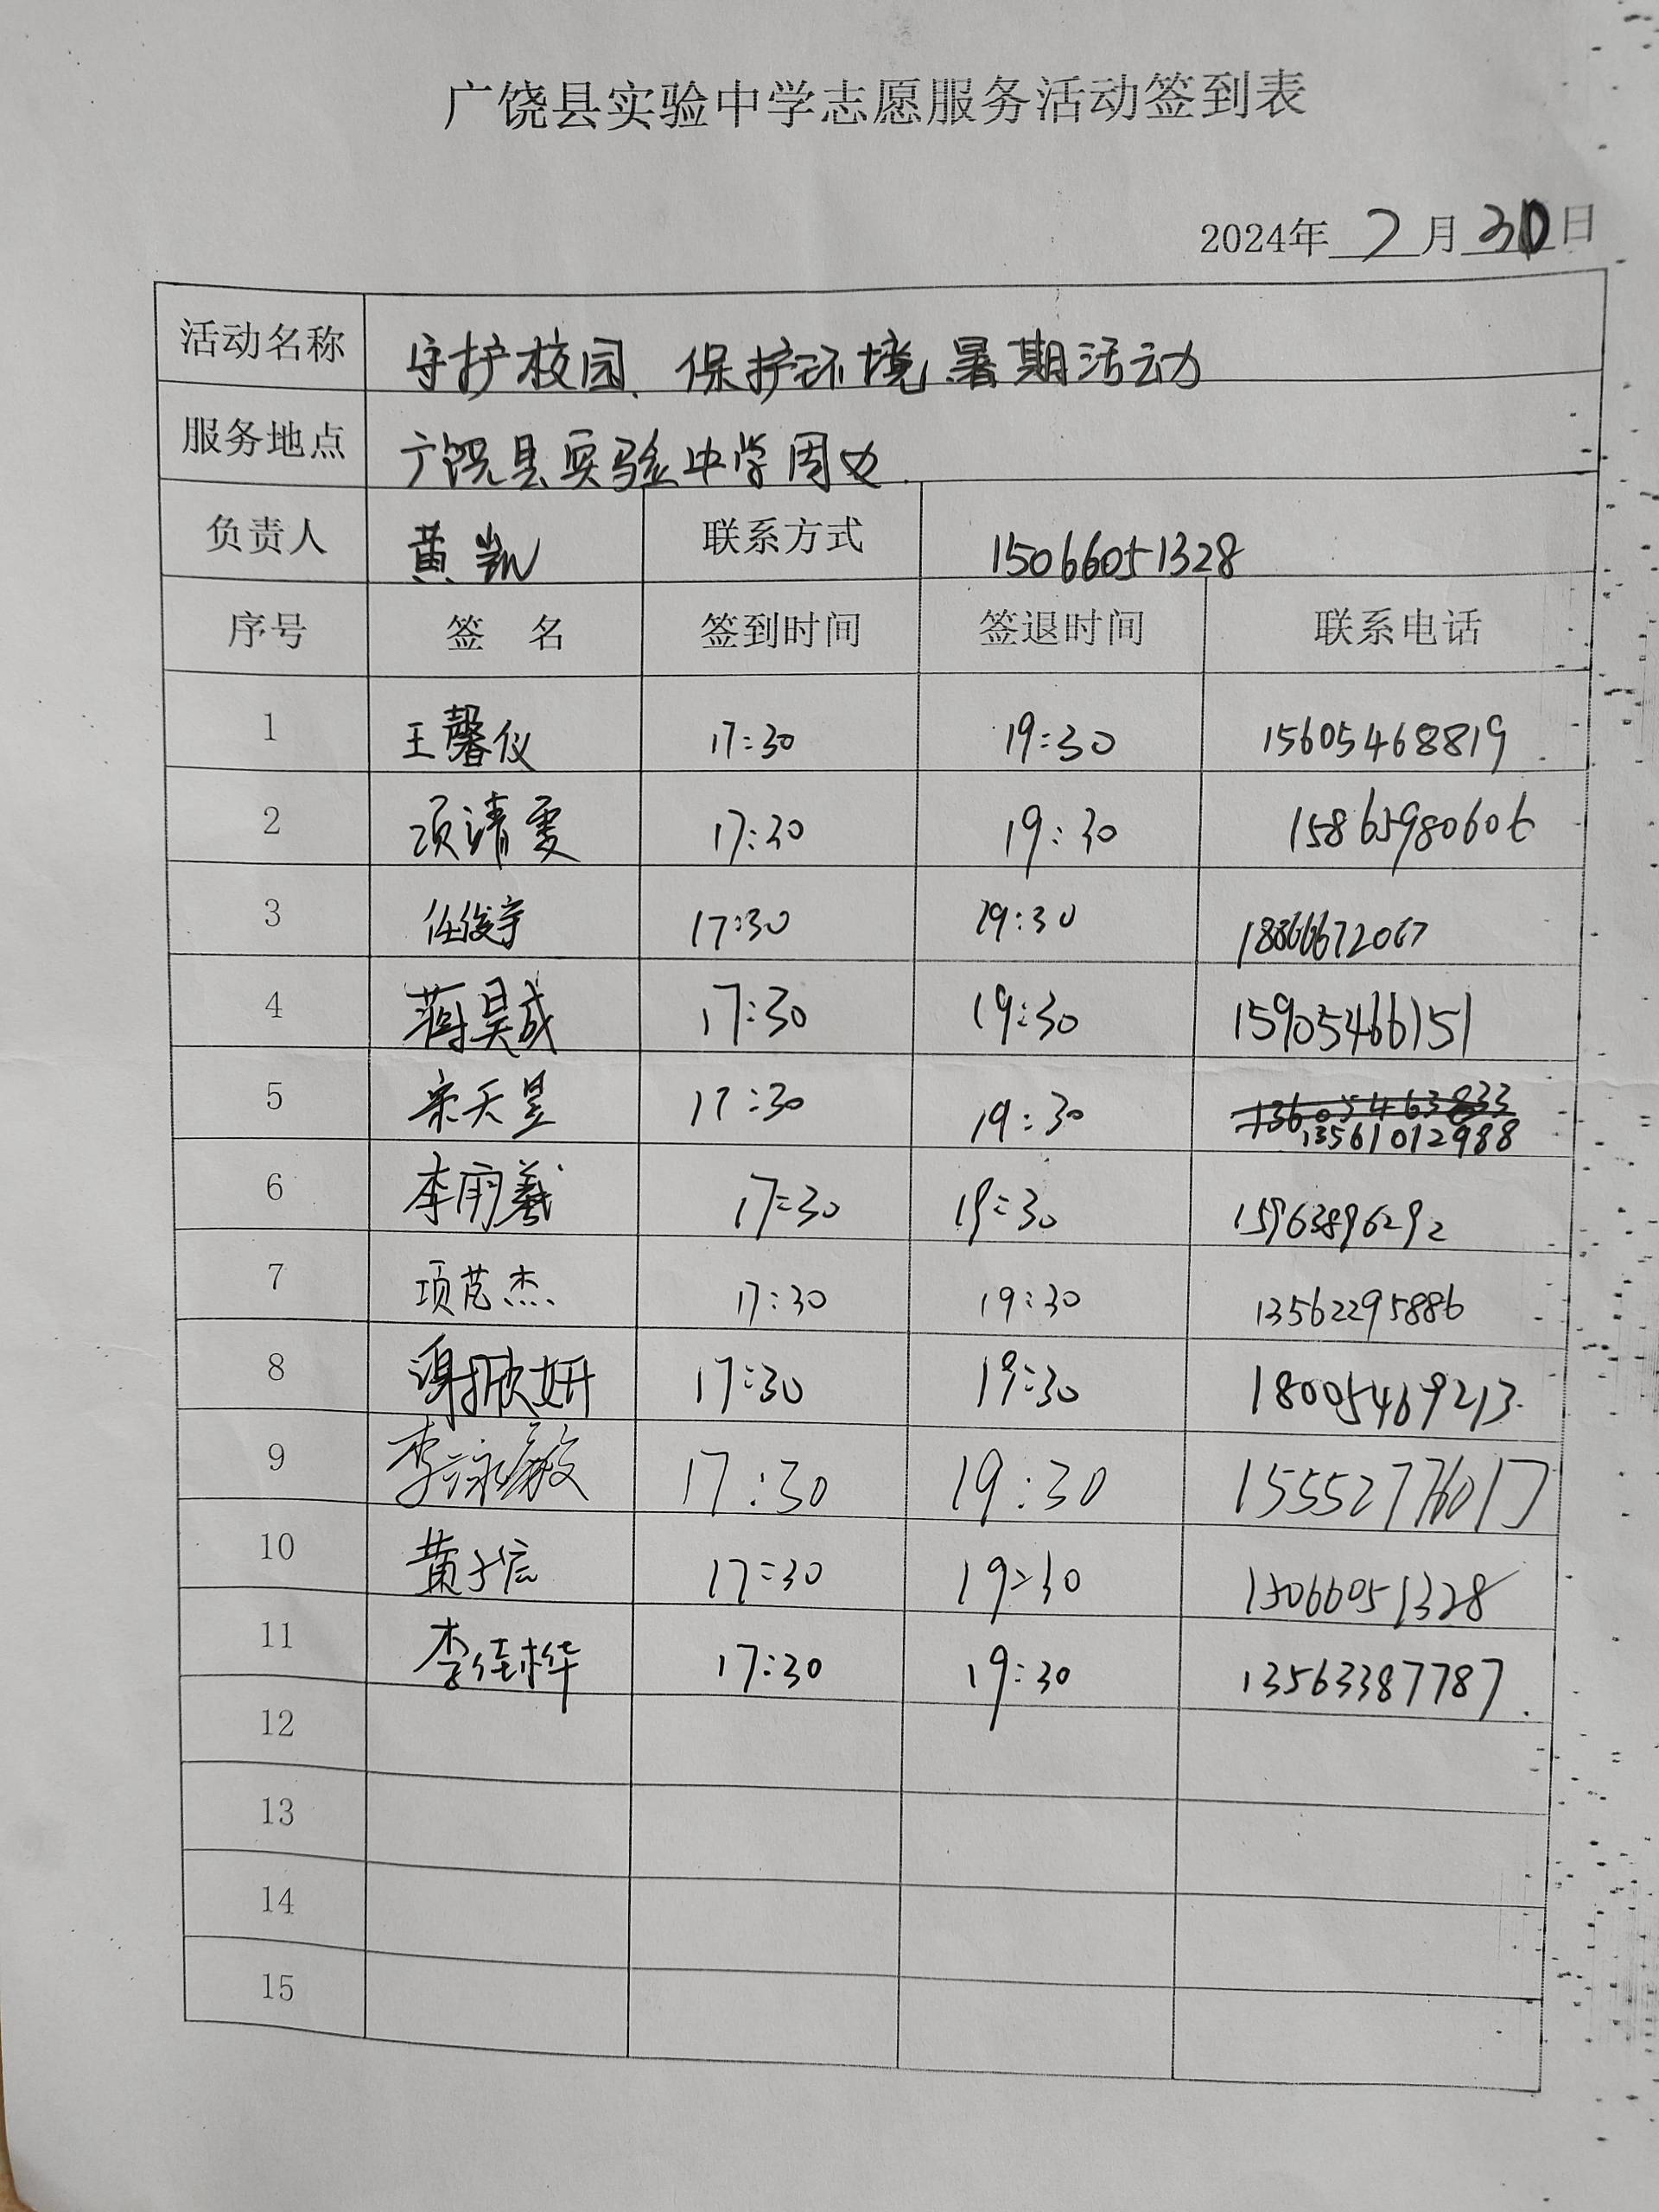 广饶县实验中学志愿服务活动签到表
2024年 7 月 30 日
活动名称 守护校园、保护环境暑期活动
服务地点 广饶县实验中学周边.
负责人 黄凯 联系方式 15066051328
序号 签 名 签到时间 签退时间 联系电话
1 王馨仪 17:30 19:30 15605468819
2 项靖雯 17:30 19:30 15865980606
3 任俊宇 17:30 19:30 18866672067
4 蒋昊成 17:30 19:30 15905466151
5 宋天昱 17:30 19:30 13605463833
13561012988
6 李雨羲 17:30 19:30 15963896292
7 项芑杰 17:30 19:30 13562295886
8 谢欣妍 17:30 19:30 18005469213
9 李 17:30 19:30 15552776017
10 黄子宸 17:30 19:30 15066051328
11 李佳桦 17:30 19:30 13563387787.
12
13
14
15